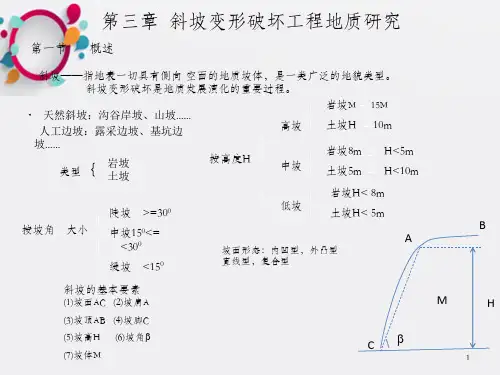 第三章 斜坡变形破坏工程地质研究
第一节 概述
斜坡——指地表一切具有侧向 空面的地质坡体，是一类广泛的地貌类型。
斜坡变形破坏是地质发展演化的重要过程。
• 天然斜坡：沟谷岸坡、山坡......
人工边坡：露采边坡、基坑边
坡......
类型 {
岩坡
土坡
按坡角 大小
陡坡 >=30⁰
中坡15⁰<=
<30⁰
缓坡 <15⁰
斜坡的基本要素
(1)坡面AC (2)坡肩A
(3)坡顶AB (4)坡脚C
(5)坡高H (6)坡角β
(7)坡体M
按高度H
高坡
岩坡M 15M
土坡H 10m
中坡
岩坡8m H<5m
土坡5m H<10m
低坡
岩坡H< 8m
土坡H< 5m
坡面形态：内凹型，外凸型
直线型，复合型
B
A
M
H
C
β
1